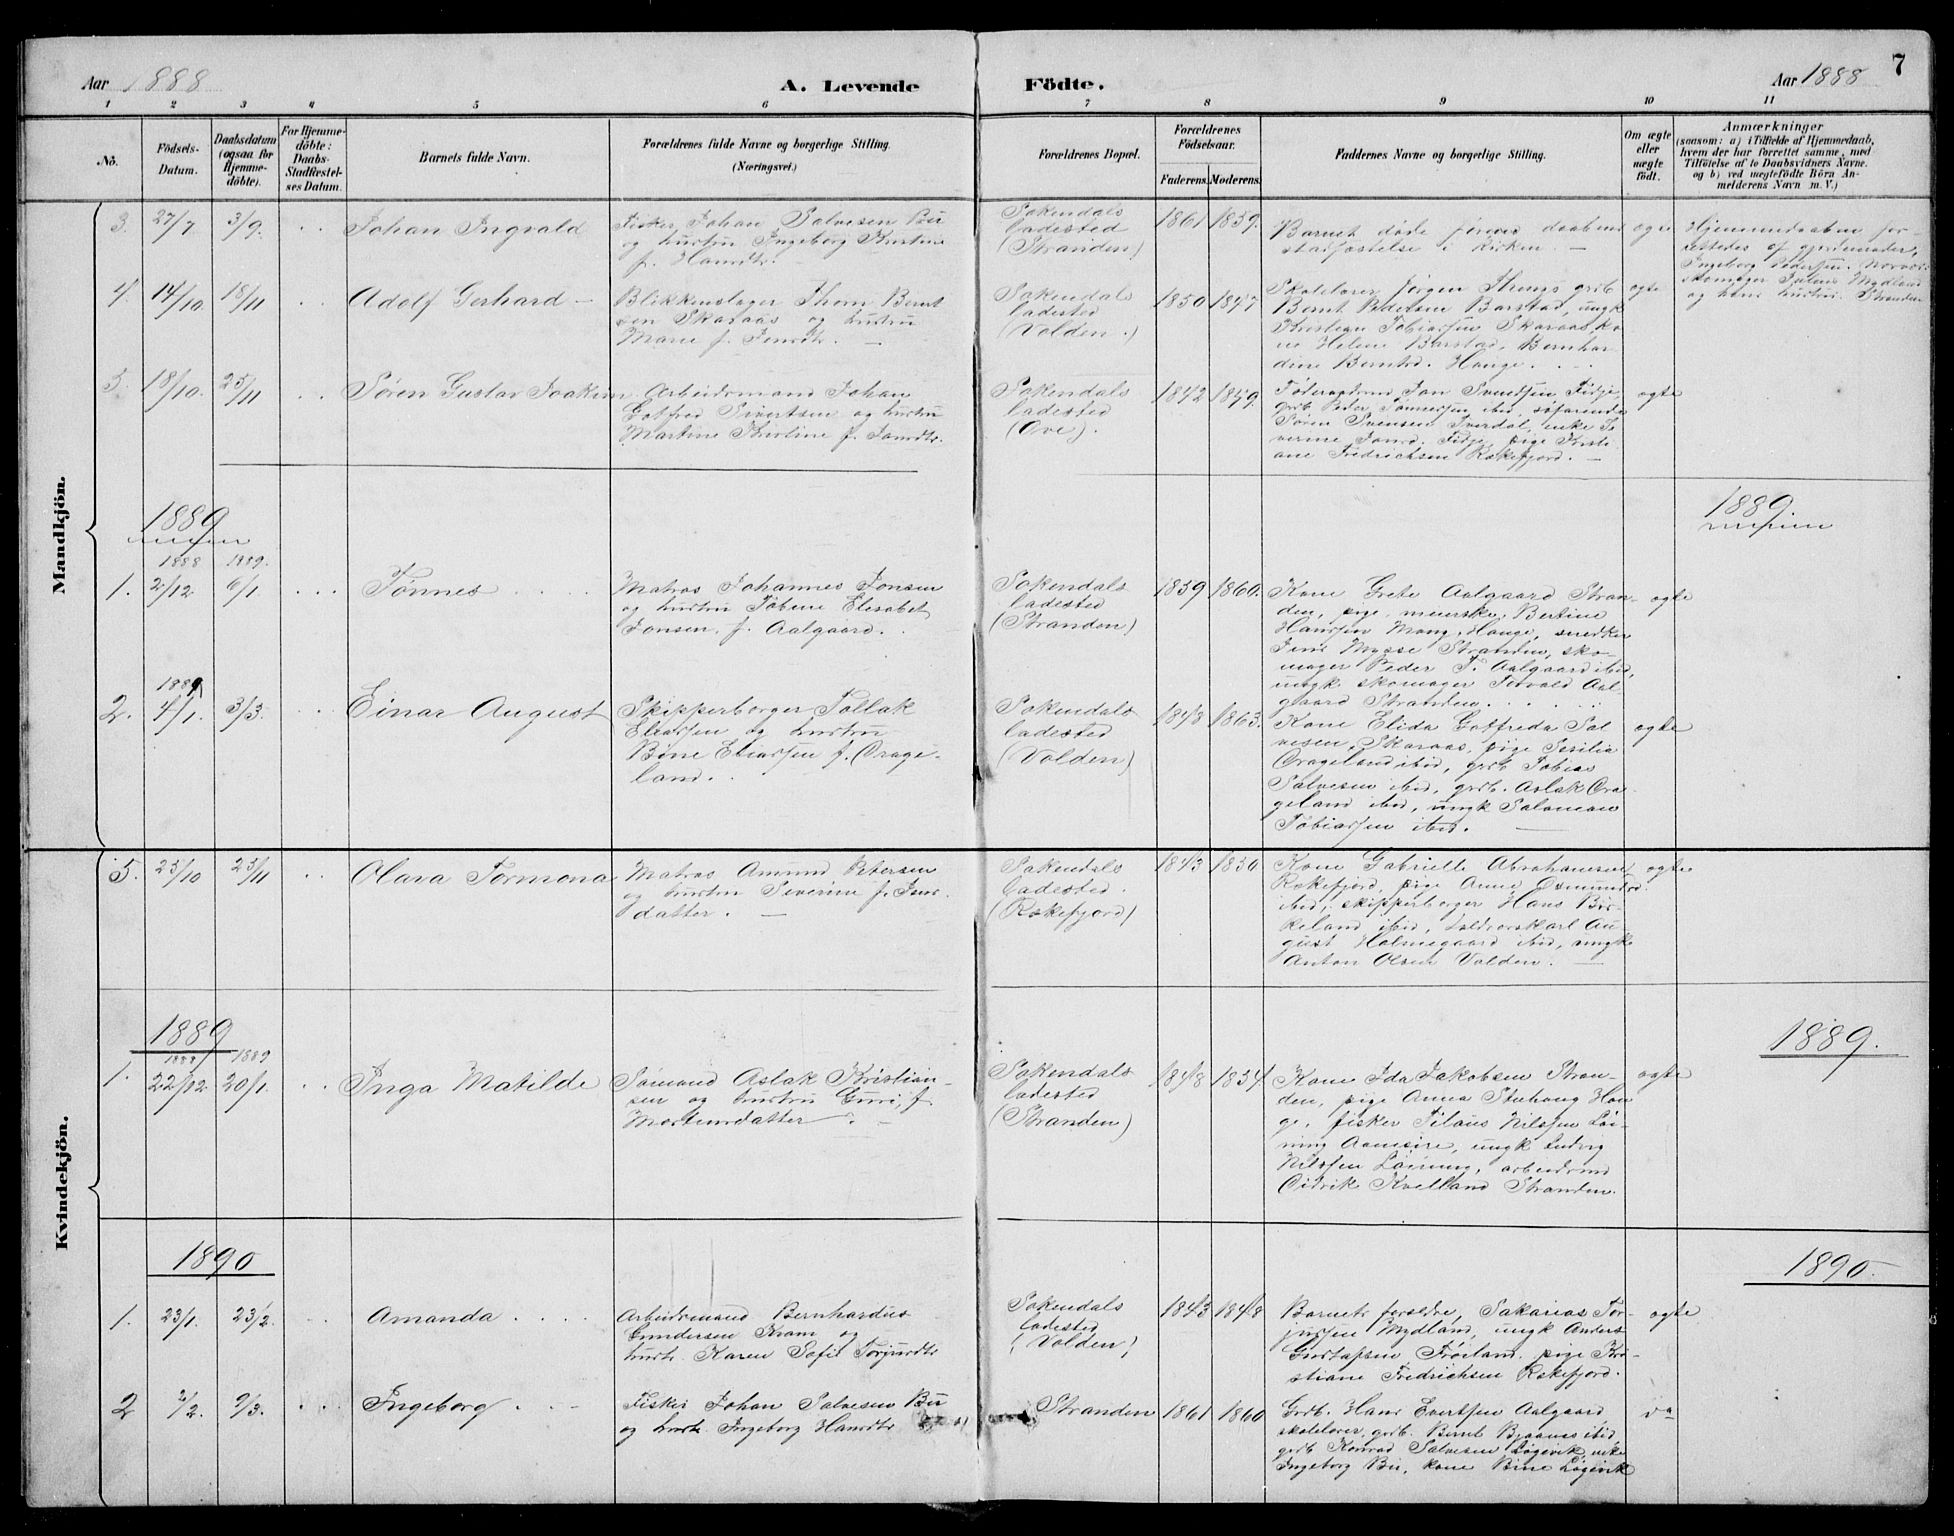 Aar 1888
A. Levende
Födte.
Aar 1888
7
1 2 3 4 5 6 7 8 9 10 11
No.
Födsels-
Datum.
Daabsdatum
(ogsaa for
Hjemme-
döbte).
For Hjemme-
döbte:
Daabs-
Stadfæstel-
ses Datum.
Barnets fulde Navn.
Forældrenes fulde Navne og borgerlige Stilling.
(Næringsvei.)
Forældrenes Bopæl.
Forældrenes
Födselsaar.
Faderens.
Moderens.
Faddernes Navne og borgerlige Stilling.
Om ægte
eller
uægte
födt.
Anmærkninger
(saasom: a) i Tilfælde af Hjemmedaab,
hvem der har forrettet samme, med
Tilföielse af to Daabsvidners Navne.
og b) ved uægtefödte Börn An-
melderens Navn m. V.)
Mandkjön.
3. 27/7 3/9. Johan Ingvald
Fisker Johan Salvesen Bu
og hustru Ingeborg Kristine
f. Hansdtr.
Sokendals
ladested
(Stranden)
1861 1859.
Barnet døde førend daabens
stadfæstelse i kirken. —
ægte
Hjemmedaaben for-
rettedes af gjordemoder
Ingeborg Pedersen.
skomager Mydland
og hans hustru. Stranden
4. 14/10. 18/11 Adolf Gerhard —
Blikkenslager Thom Bernt
sen Skaraas og hustru
Marie f. Jensdtr. —
Sokendals
ladested
(Valden.)
1850 1847
Skolelærer Jørgen grdb
Bernt Pedersen Barstad, ungk
Kristian Tobiassen Skaraas, ko
ne Helene Barstad, Bernhar
dine Berntsd. Hauge.
ægte
5. 18/10. 25/11 Søren Gustav Joakim
Arbeidsmand Johan
Gotfred Sivertsen og hustru
Martine Kirstine f. Jansdtr.
Sokendals
ladested
(Ove).
1842 1849.
Føderaadsmd Jan Svendsen Fidje,
grdb Peder ibid, søfarende
Søren Svensen Sverdal, enke Se
verine Jansd. Fidje, pige Kristi
ane Fredrichsen Rækefjord. —
ægte
1889
1889.
1888 1889.
1. 2/12. 6/1 Tønnes
Matros Johannes Jonsen
og hustru Tobine Elisabet
Jonsen, f. Aalgaard.
Sokendals
ladested
(Stranden)
1859 1860.
Kone Grete Aalgaard Stran-
den, pige meierske Bertine
Hanssen Mong, Hauge, snedker
Jens Mysse Stranden, sko-
mager Peder T. Aalgaard ibid,
ungk. skomager Torvald Aal
gaard Stranden.
ægte
1889
2. 4/1. 3/3. Einar August
Skipperborger Tollak
Eliassen og hustru
Bine Eliassen f. Orage-
land.
Sokendals
ladested
(Valden)
1848 1863.
Kone Elida Gotfreda Sal
vesen, Skaraas, pige Sesilia
Orageland ibid, grdb Tobias
Salvesen ibid, grdb. Aslak Ora
geland ibid, ungk Salomon
Tobiassen ibid.
ægte
Kvindekjön.
5. 25/10 25/11 Olava Tormona
Matros Amund Petersen
og hustru Severine f. Jens
datter. —
Sokendals
ladested.
(Rækefjord)
1843 1850
Kone Gabrielle Abrahamsen
Rækefjord, pige Anne Osmundsd.
ibid, skipperborger Hans Bir-
keland ibid, Au
gust Holmegaard ibid, ungk
Anton Olsen Valden. —
ægte
1889
1889.
1888 1889
1. 22/12. 20/1. Inga Matilde
Sømand Aslak Kristian-
sen og hustru Guri, f.
Mortensdatter. —
Sokendals
ladested
(Stranden)
1848 1854
Kone Ida Jakobsen Stran-
den, pige Anna Stuhaug Hau
ge, fisker Tilaus Nilssen Løi-
ning Aamsire, ungk Ludvig
Nilssen Løining, arbeidsmd
Didrik Kvelland Stranden.
ægte
1890
1890.
1. 23/1. 23/2. Amanda
Arbeidsmand Bernhardus
Gundersen Kram og
hustr. Karen Sofie Torjersdtr
Sokendals
ladested
(Valden)
1843 1848
Barnets forældre, Sakarias Tor-
jussen Mydland, ungk Anders
Gustafsen Frøiland, pige Kri-
stiane Fredrichsen Rækefjord.
ægte
2 2/2. 9/3. Ingeborg
Fisker Johan Salvesen Bu
og hustr. Ingeborg Hansdtr
Stranden 1861 1860
Grdb. Hans Evertsen Aalgaard
skolelærer, grdb. Bernt ibid
grdb Konrad Salvesen Løgevik, enke
Ingeborg Bu, kone Bine Løgevik